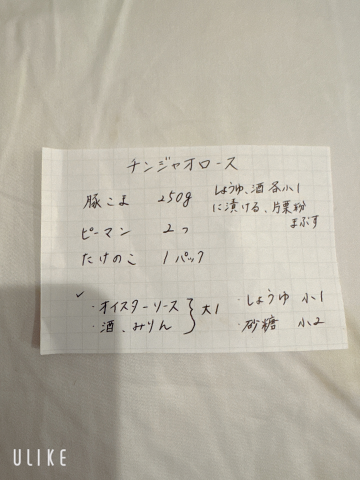 チンジャオロース
豚こま 250g しょうゆ、酒 各小1
に漬ける、片栗粉
まぶす
ピーマン 2つ
たけのこ 1パック
✓
・オイスターソース } 大1
・酒、みりん
・しょうゆ 小1
・砂糖 小2
ULIKE